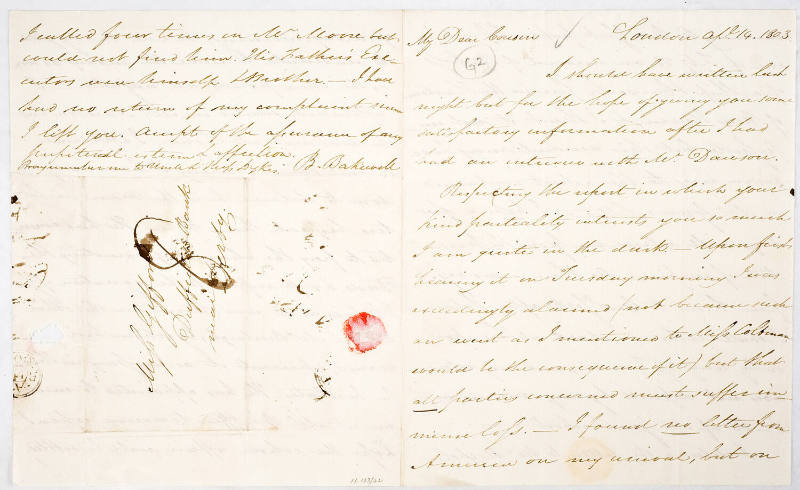 I called four times on Mr. Moore but
could not find him. His Father's Exe-
cutors were himself & Brother. — I have
had no return of my complaint since
I left you. Accept of the assurance of my
perpetual esteem & affection.
B. Bakewell
Miss Gifford
Duffield Bank
near
Derby
8
My Dear Cousin London Apl. 14. 1803
62
I should have written last
night but for the hope of giving you some
satisfactory information after I had
had an interview with Mr. Dawson.
Respecting the report in which your
kind partiality interests you so much
I am quite in the dark. — Upon first
hearing it on Tuesday morning I was
exceedingly alarmed (not because such
an event as I mentioned to Miss Coltman
would be the consequence of it) but that
all parties concerned must suffer im-
mense loss. — I found no letter from
America on my arrival, but on